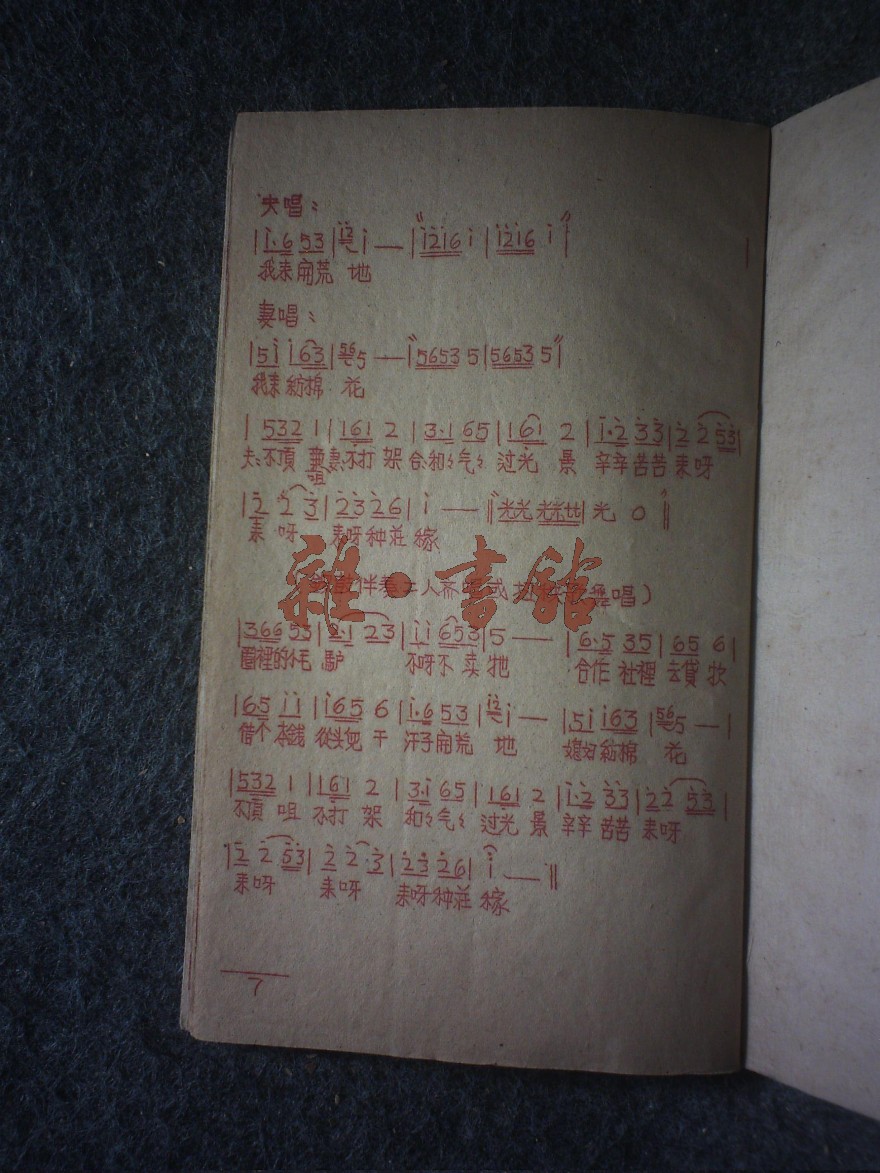 夫唱：
|i·6 53|i2i —|"i2i6 i|i2i6 i"|
我来开荒 地
妻唱：
|5i i63|565 —|"5653 5|5653 5"|
我来紡棉 花
|532 1|161 2|3·1 65|161 2|i·2 33|2 2 53|
夫:不頂 咀 妻:不打 架 合:和〻气〻 过光 景 辛辛苦苦 来呀
|2 2 3|23 26|i —|"光光 光光比|光 0"|
来 呀 来呀种庄 稼
雜·書館
伴奏二人 唱)
|366 53|2·1 23|ii 653|5 —|6·5 35|65 6|
圈裡的小毛 駞 不呀不 卖牠 合作 社裡 去貸 款
|65 ii|i65 6|i·6 53|i2i —|5i i63|565 —|
借个 本錢 從头兒 干 汗子开荒 地 媳妇紡棉 花
|532 1|161 2|3·i 65|161 2|i·2 33|22 53|
不頂 咀 不打 架 和〻气〻 过光 景 辛辛 苦苦 来呀
|2 2 53|2 2·3|23 26|i —||
来呀 来呀 来呀种庄 稼
7